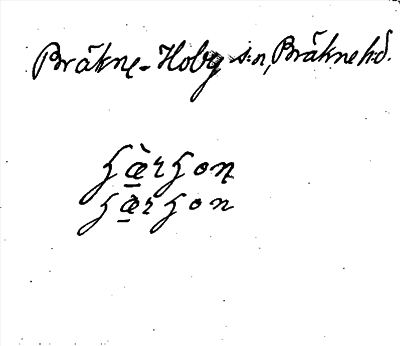 Bräkne-Hoby s:n, Bräkne hd.
hærhon
hærhon